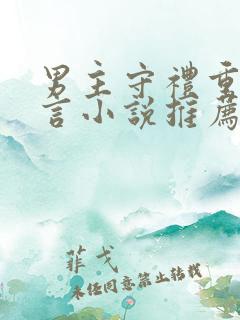 男主守禮重
言小說推薦
菲戈
未经同意禁止转载